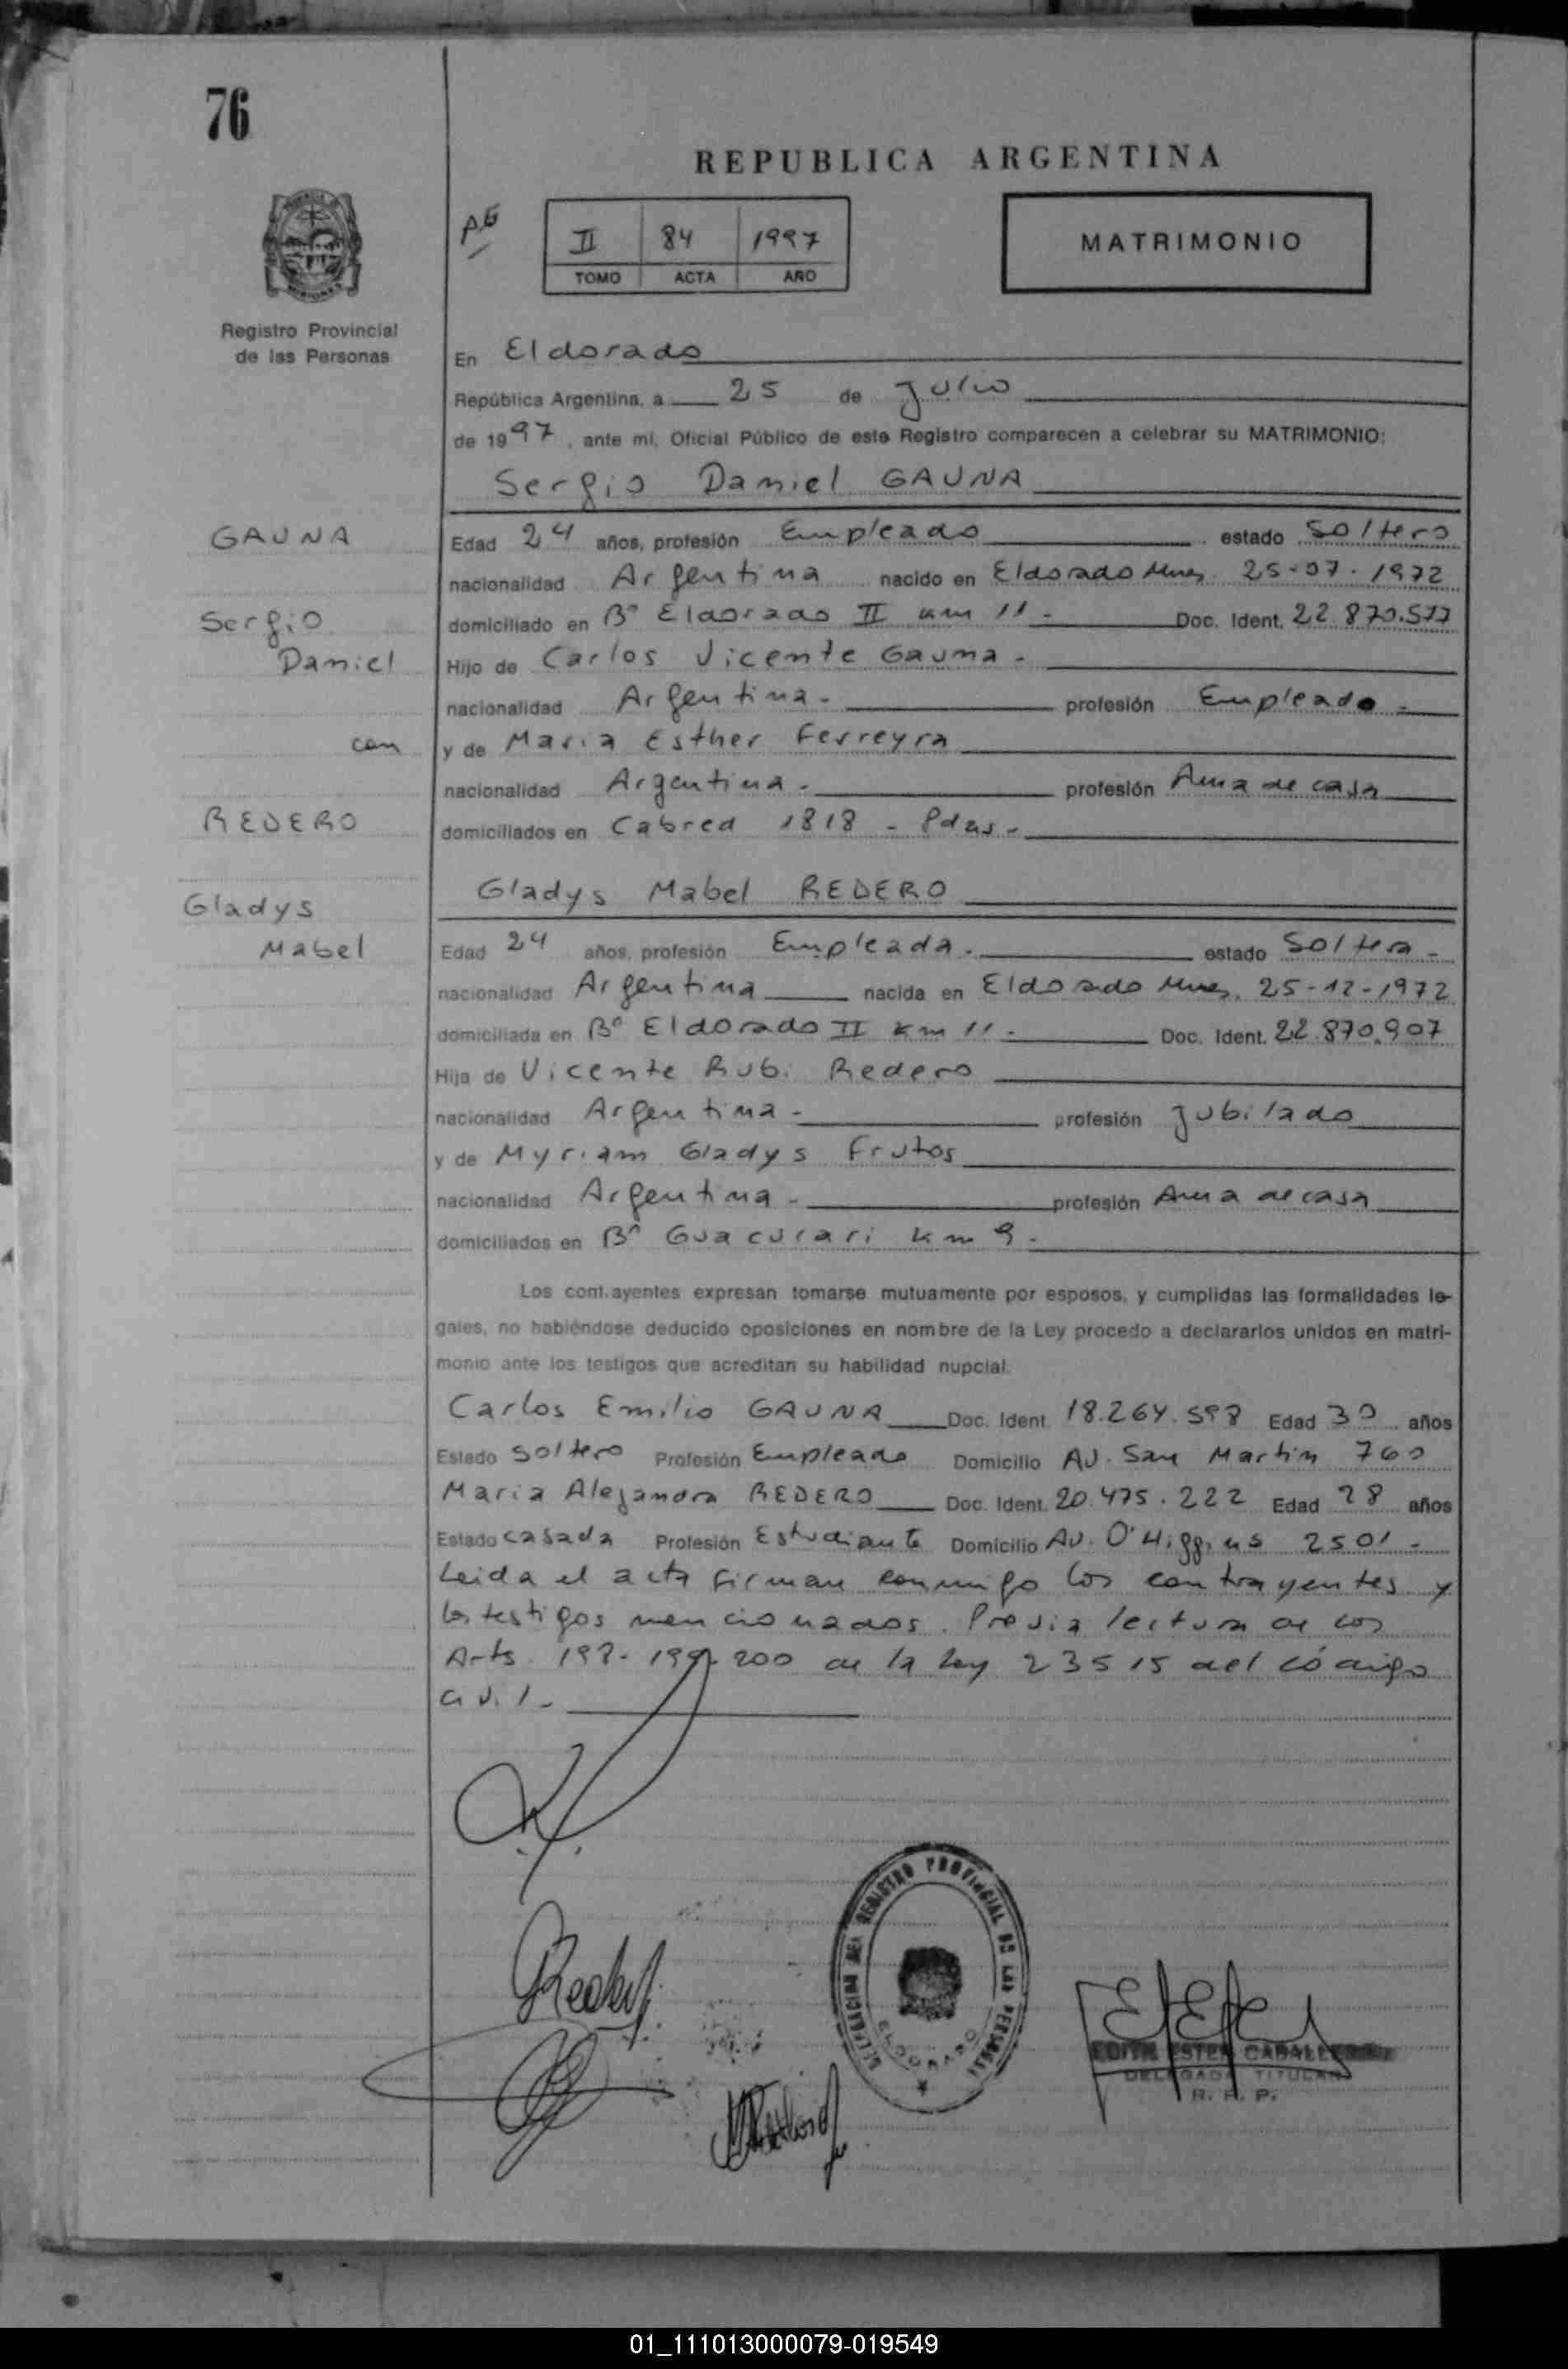 76
REPUBLICA ARGENTINA
II 84 1997
TOMO ACTA AÑO
MATRIMONIO
Registro Provincial
de las Personas
En Eldorado
República Argentina, a 25 de Julio
de 1997, ante mí, Oficial Público de este Registro comparecen a celebrar su MATRIMONIO:
Sergio Daniel GAUNA
GAUNA
Sergio
Daniel
con
REDERO
Gladys
Mabel
Edad 24 años, profesión Empleado estado Soltero
nacionalidad Argentina nacido en Eldorado Mnes. 25-07-1972
domiciliado en B° Eldorado II km 11 - Doc. Ident. 22.870.577
Hijo de Carlos Vicente Gauna -
nacionalidad Argentina - profesión Empleado -
y de Maria Esther Ferreyra
nacionalidad Argentina - profesión Ama de casa
domiciliados en Cabred 1818 - Pdas -
Gladys Mabel REDERO
Edad 24 años, profesión Empleada - estado Soltera -
nacionalidad Argentina nacida en Eldorado Mnes. 25-12-1972
domiciliada en B° Eldorado II km 11 - Doc. Ident. 22.870.907
Hija de Vicente Rubi Redero
nacionalidad Argentina - profesión Jubilado
y de Myriam Gladys Frutos
nacionalidad Argentina - profesión Ama de casa
domiciliados en B° Guacurari km 9 -
Los cont.ayentes expresan tomarse mutuamente por esposos, y cumplidas las formalidades le-
gales, no habiéndose deducido oposiciones en nombre de la Ley procedo a declararlos unidos en matri-
monio ante los testigos que acreditan su habilidad nupcial.
Carlos Emilio GAUNA Doc. Ident. 18.264.598 Edad 30 años
Estado Soltero Profesión Empleado Domicilio Av. San Martin 760
Maria Alejandra REDERO Doc. Ident. 20.475.222 Edad 28 años
Estado casada Profesión Estudiante Domicilio Av. O'Higgins 2501 -
Leida el acta firman conmigo los contrayentes y
los testigos mencionados. Previa lectura de los
Arts. 198-199-200 de la Ley 23515 del código
civil -
DELEGACION DEL REGISTRO PROVINCIAL DE LAS PERSONAS
ELDORADO
EDITH ESTER CABALLERO
DELEGADA TITULAR
R. P. P.
01_111013000079-019549